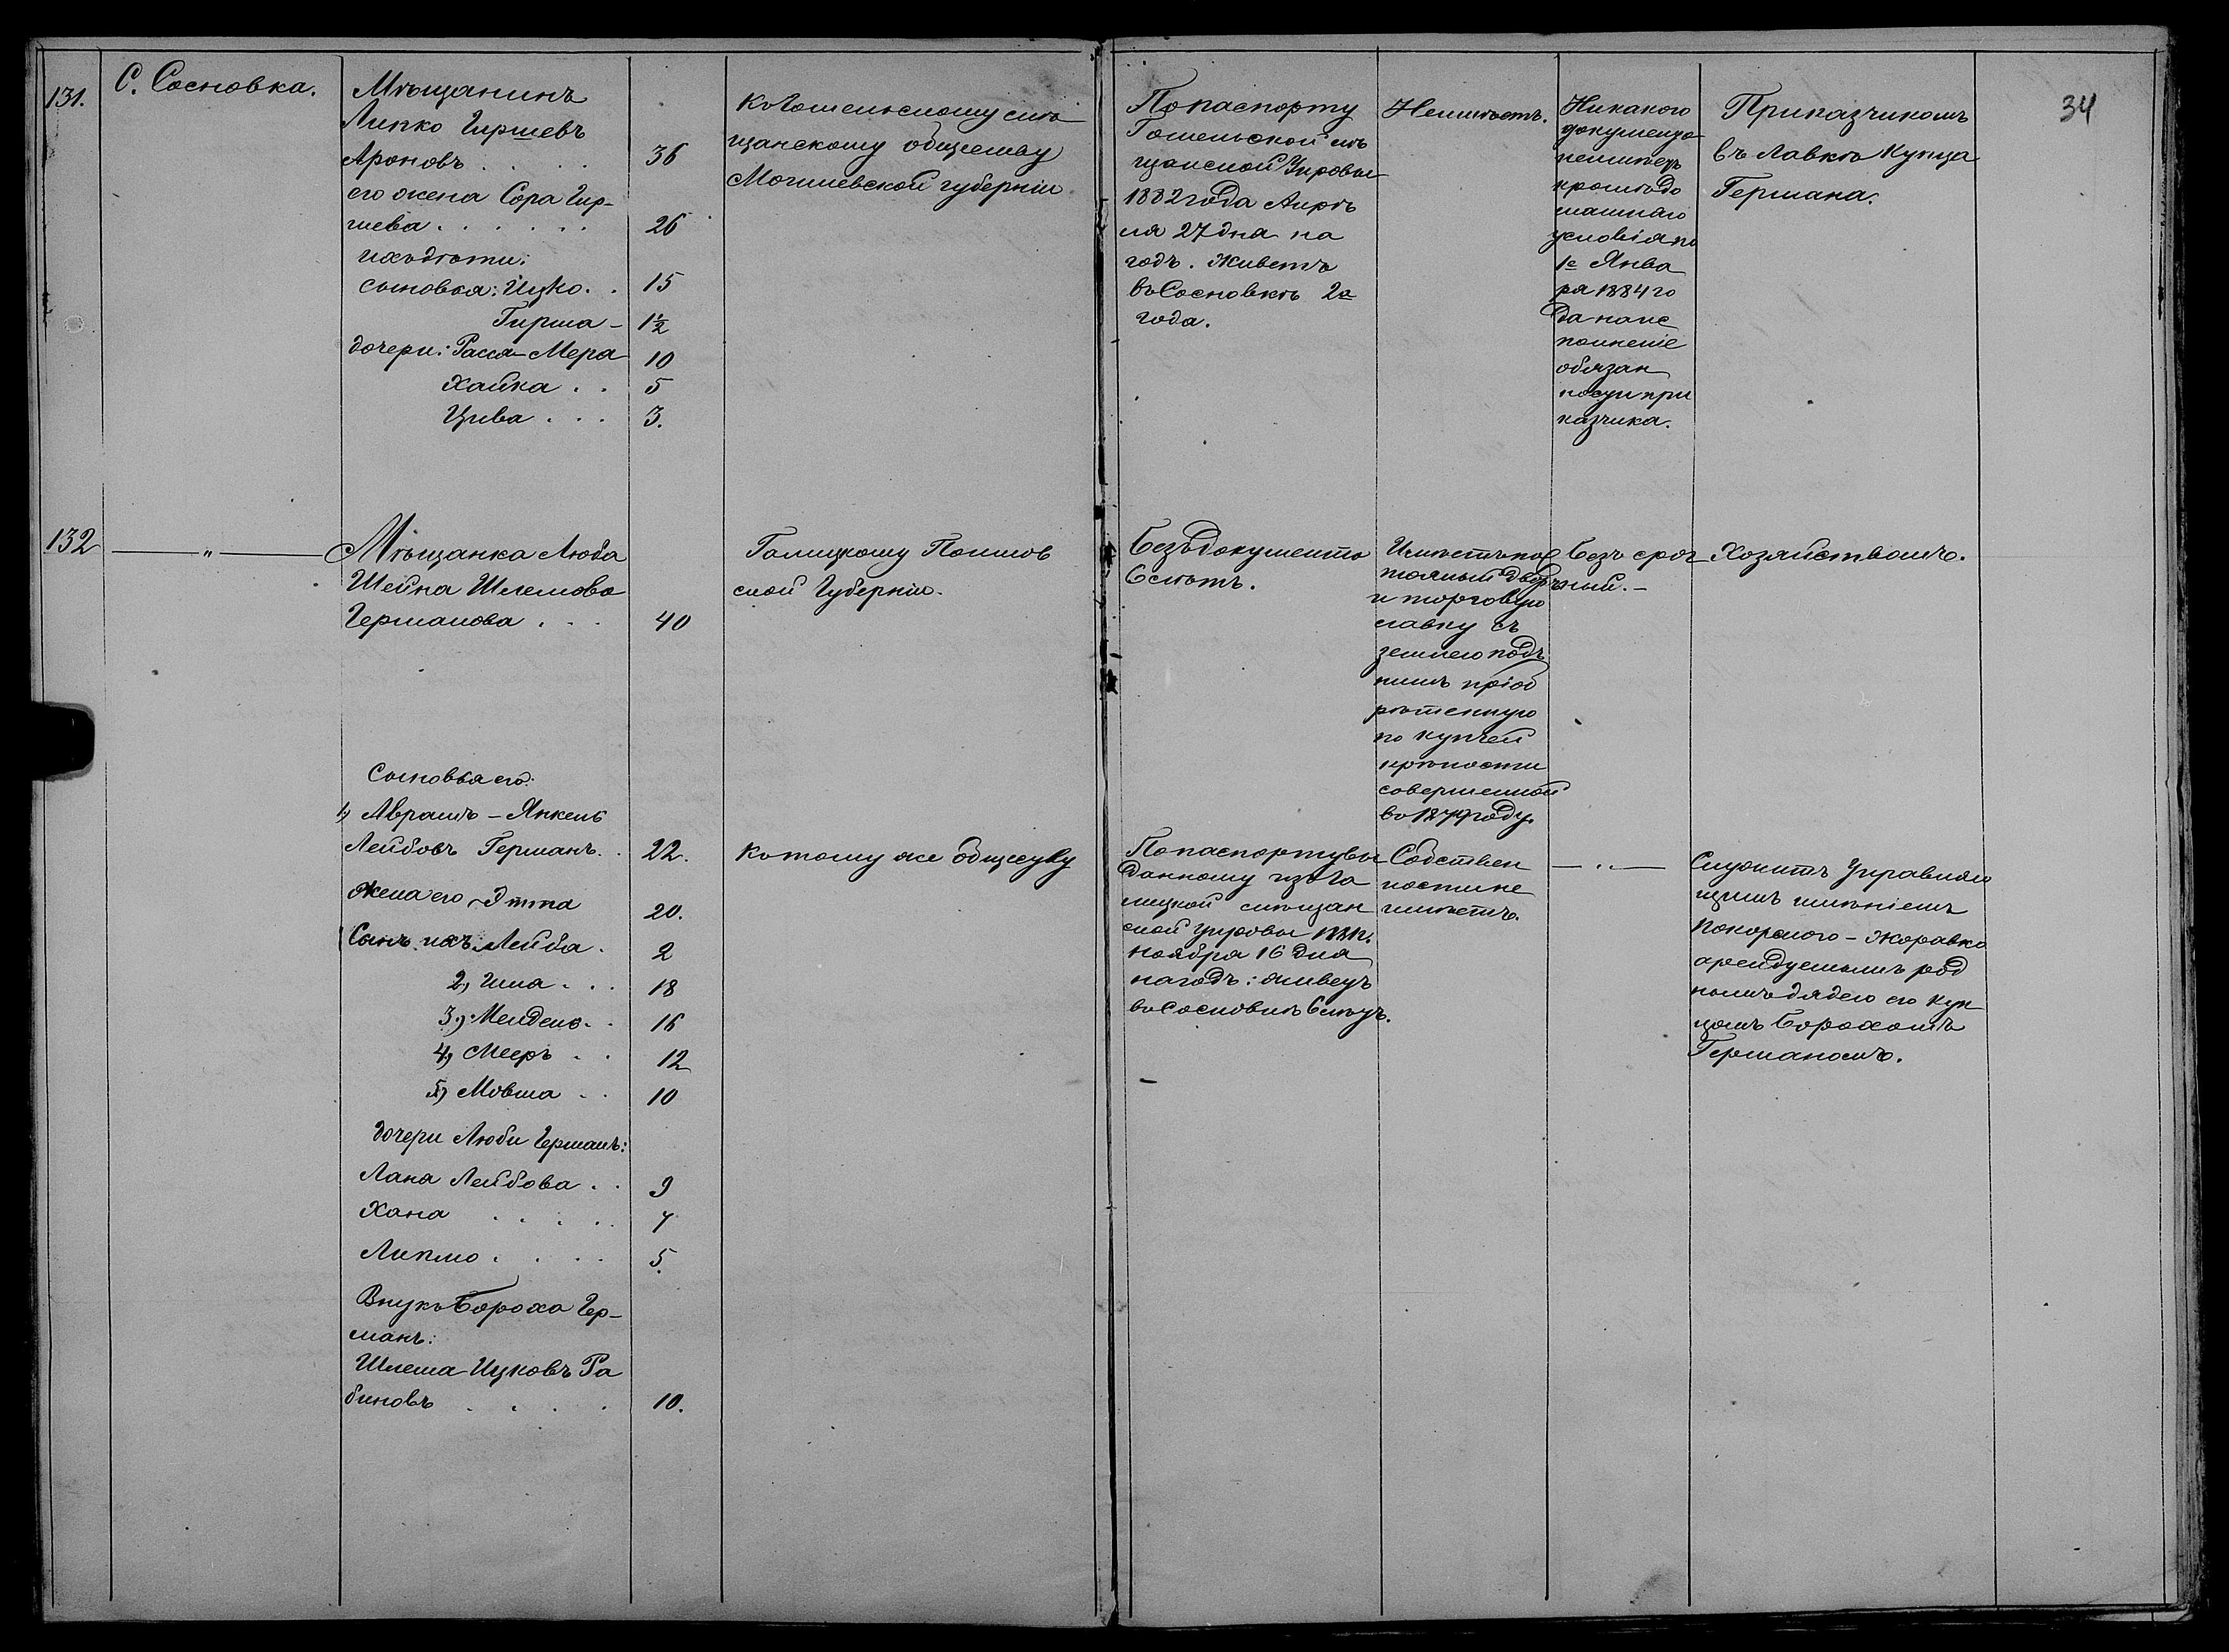 34
131.
С. Сосновка.
Мѣщанинъ
Липко Гиршевъ
Ароновъ . . . . 36
его жена Сора Гир-
шева . . . . . . 26
ихъ дѣти:
сыновья: Ицко . . 15
Гирша - 1½
дочери: Расся-Мера 10
Хайка . . 5
Цива . . . 3.
Къ Гомельскому мѣ
щанскому обществу
Могилевской губерніи
По паспорту
Гомельской мѣ
щанской Управы
1882 года Апрѣ
ля 27 дня на
годъ. Живетъ
въ Сосновкѣ 2а
года.
Неимѣетъ.
Никакого
документа
неимѣетъ
кромѣ до
машняго
условія по
1е Янва
ря 1884 го
да на ис
полненіе
обязан
ности при
казчика.
Приказчикомъ
въ лавкѣ Купца
Германа.
132
"
Мѣщанка Люба
Шейна Шлемова
Германова . . . 40
Голицкому
ской Губерніи.
Безъ документа
6 лѣтъ.
Имѣетъ пос
тоялый дворъ
и торговую
лавку съ
землею подъ
нимъ пріоб
рѣтенную
по купчей
крѣпости
совершенной
въ 1879 году.
Безъ сроч
ный. -
Хозяйствомъ.
Сыновья его:
1) Аврамъ - Янкель
Лейбовъ Германъ. . 22.
Жена его - Этта 20.
Сынъ ихъ Лейба . 2
2) . . . 18
3) Мендель . . 16
4) Мееръ . . 12
5) Мовша . . 10
дочери Любы Германъ:
Лана Лейбова . . 9
Хана . . . . . 7
. . . . 5.
Внукъ Бороха Гер-
манъ:
Шлема Ицковъ Ра
биновъ . . . . 10.
Къ тому же обществу
По паспорту вы
данному изъ Го
лицкой мѣщан
ской управы 1882.
Ноября 16 дня
на годъ: живетъ
въ Сосновкѣ 6 лѣтъ.
Собствен
ности не
имѣетъ.
"
Служитъ Управляю
щимъ имѣніемъ
Покорского - Жоравко
арендуемымъ род
нымъ дядею его Куп
цомъ Борохомъ
Германомъ.